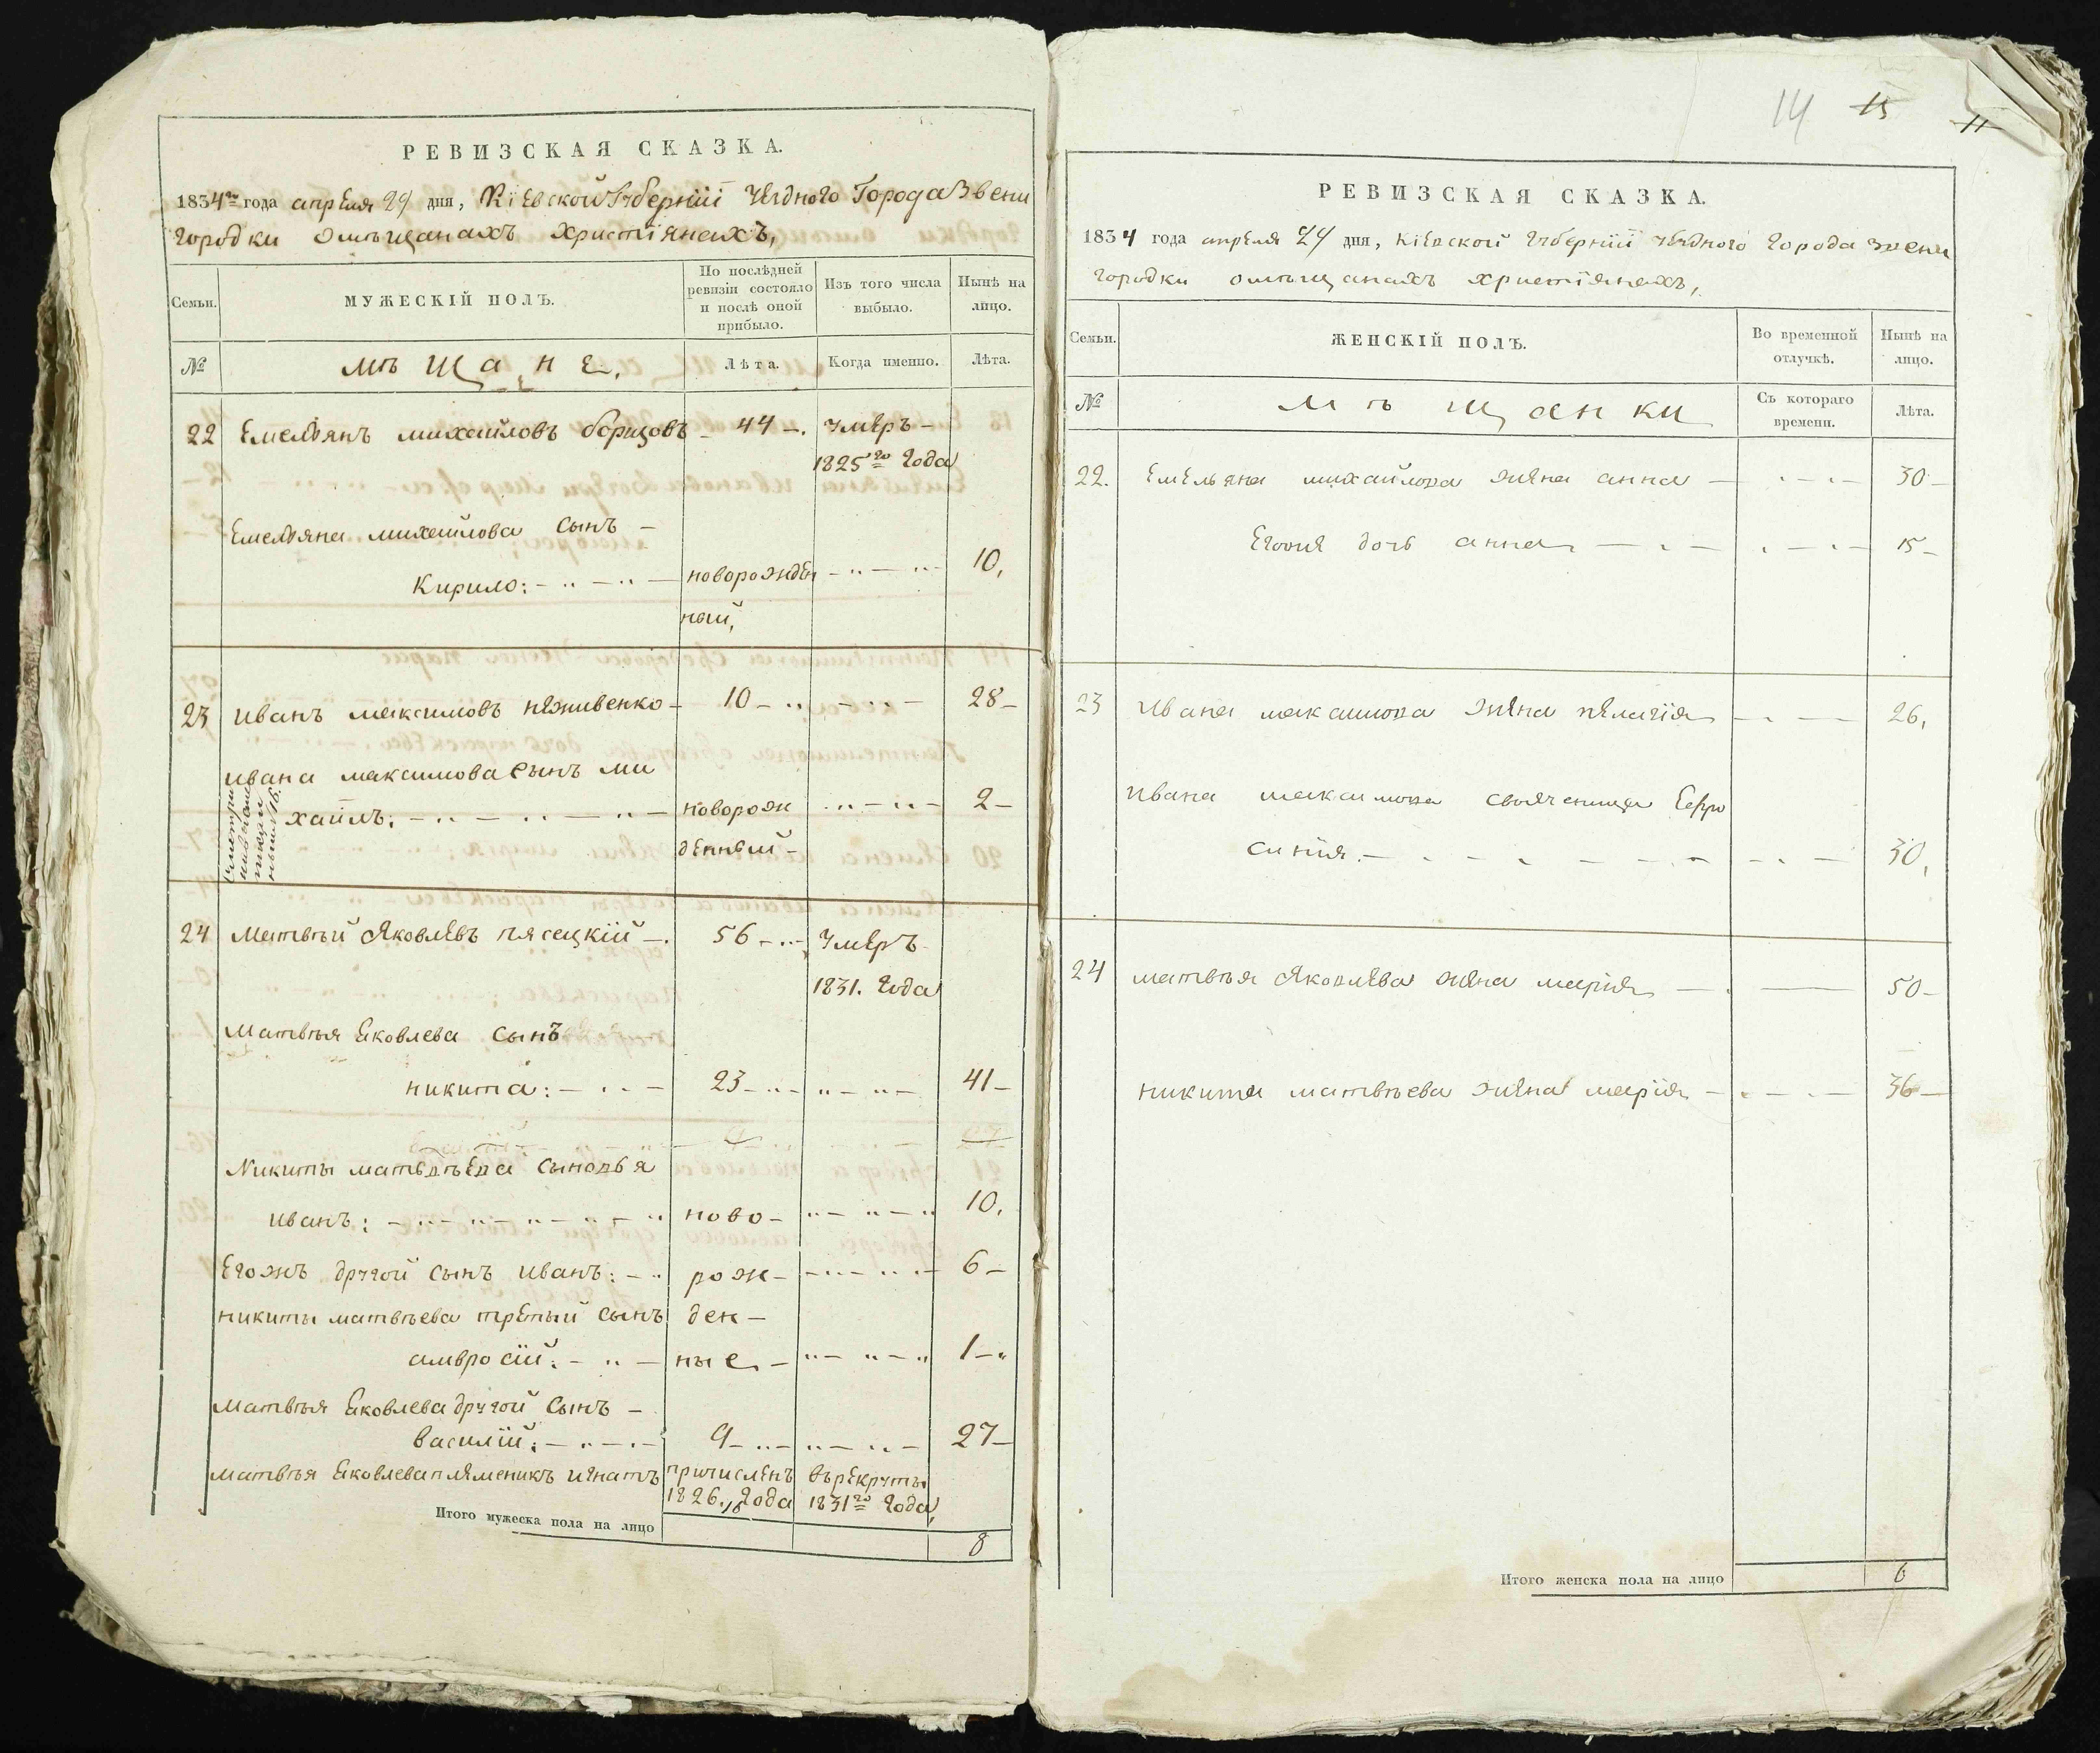 РЕВИЗСКАЯ СКАЗКА.
1834го года апреля 29 дня, Кіевской Губерніи Уездного Города Звени
городки омѣщанахъ христіянахъ,
Семьи.
МУЖЕСКІЙ ПОЛЪ.
По послѣдней ревизіи состояло и послѣ оной прибыло.
Изъ того числа выбыло.
Нынѣ на лицо.
№
мѣщане,
Лѣта.
Когда именно.
Лѣта.
22 Емельянъ михайловъ борщовъ – 44 –. умеръ –
1825го года
Емельяна михайлова сынъ –
Кирило: – новорожден 10,
ный,
23 иванъ максимовъ неживенко – 10 – 28 –
ивана максимова сынъ ми
хаилъ: – новорож 2 –
денный –
24 Матвѣй Яковлевъ пясецкій –. 56 – умеръ
1831. года
Матвѣя Яковлева сынъ
никита: – 23 – 41 –
Никиты матвѣева сыновья
иванъ: – ново – 10,
Егожъ другой сынъ иванъ: – рож – 6 –
никиты матвѣева третий сынъ ден –
амвросій: – ные – 1 –
Матвѣя Яковлева другой сынъ –
василій: – 9 – 27 –
матвѣя Яковлева племеникъ игнатъ причисленъ върекруты
1826. года 1831го года,
Итого мужеска пола на лицо 8
14 15
11
РЕВИЗСКАЯ СКАЗКА.
1834 года апреля 29 дня, Кіевской Губерніи уездного города звени
городки омѣщанахъ христіянахъ,
Семьи.
ЖЕНСКІЙ ПОЛЪ.
Во временной отлучкѣ.
Нынѣ на лицо.
№
мѣщанки
Съ котораго времени.
Лѣта.
22. Емельяна михайлова жена анна – 30 –
Егоия дочь анна – 15 –
23 ивана максимова жена пелагія – 26,
ивана максимова своячениця Ефро
синія. – 30,
24 матвѣя Яковлева жена марія – 50 –
никиты матвѣева жена марія – 36 –
Итого женска пола на лицо 6